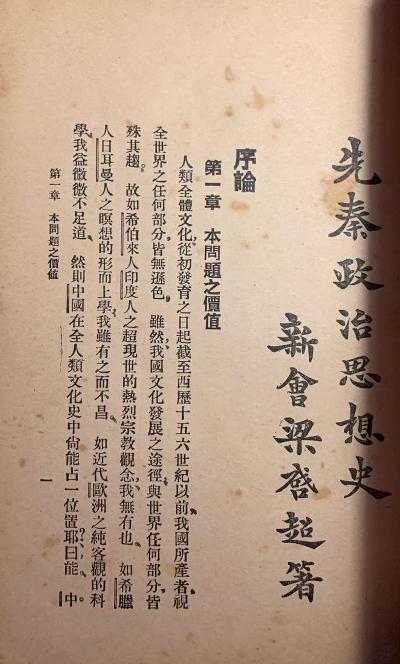 先秦政治思想史
新會梁啓超著
序論
第一章 本問題之價値
人類全體文化、從初發育之日起截至西歷十五六世紀以前、我國所產者、視
全世界之任何部分、皆無遜色。雖然、我國文化發展之途徑、與世界任何部分、皆
殊其趨。故如希伯來人印度人之超現世的熱烈宗教觀念、我無有也。如希臘
人日耳曼人之瞑想的形而上學、我雖有之而不昌。如近代歐洲之純客觀的科
學、我益微微不足道。然則中國在全人類文化史中尙能占一位置耶?曰、能。中
第一章 本問題之價値
一